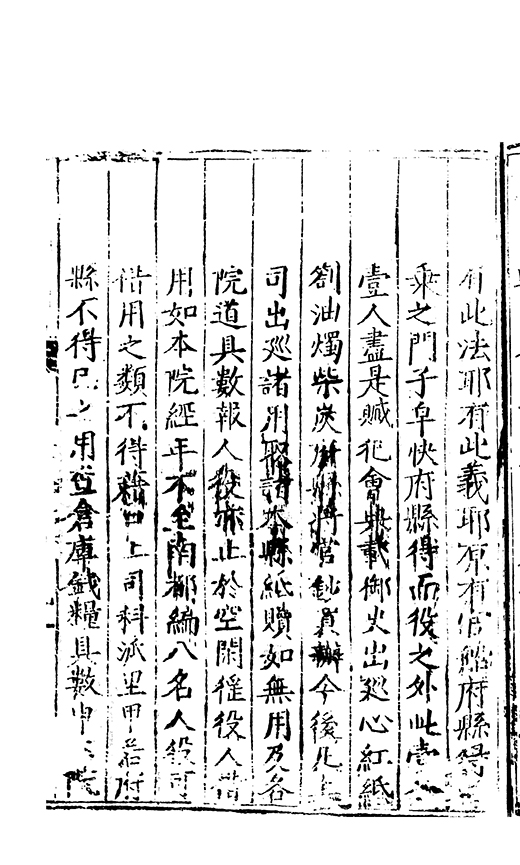 有此法耶有此義耶原有官船府縣得
乘之門子皂快府縣得而役之外此
壹人盡是贓犯會典載御史出巡心紅紙
劄油燭柴炭官鈔買辦今後凡上
司出巡諸用取諸本縣紙贖如無用及各
院道具數報人役亦止於空閑徭役人借
用如本院經年不至南都編八名人役可
借用之類不得藉口上司科派里甲若府
縣不得已之用查倉庫錢糧具數申院